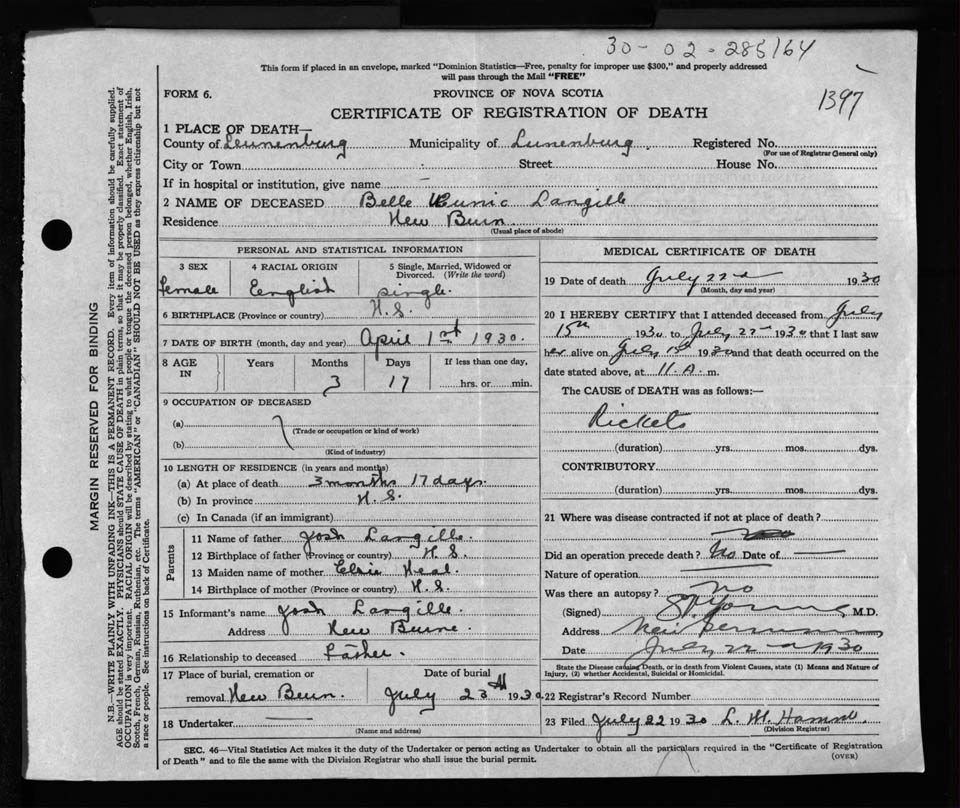 30-02-285164
This form if placed in an envelope, marked "Dominion Statistics—Free, penalty for improper use $300," and properly addressed
will pass through the Mail "FREE"
FORM 6.
PROVINCE OF NOVA SCOTIA
1397
CERTIFICATE OF REGISTRATION OF DEATH
1 PLACE OF DEATH—
County of Lunenburg Municipality of Lunenburg Registered No.
(For use of Registrar General only)
City or Town Street House No.
If in hospital or institution, give name —
2 NAME OF DECEASED Belle Eunic Langille
Residence New Burn
(Usual place of abode)
PERSONAL AND STATISTICAL INFORMATION
3 SEX 4 RACIAL ORIGIN 5 Single, Married, Widowed or
Divorced. (Write the word)
Female English single.
6 BIRTHPLACE (Province or country) N.S.
7 DATE OF BIRTH (month, day and year) April 1st 1930.
8 AGE IN Years Months Days If less than one day,
3 17 hrs. or min.
9 OCCUPATION OF DECEASED
(a)
(Trade or occupation or kind of work)
(b)
(Kind of industry)
10 LENGTH OF RESIDENCE (in years and months)
(a) At place of death 3 months 17 days.
(b) In province N.S.
(c) In Canada (if an immigrant)
Parents
11 Name of father Josh Langille.
12 Birthplace of father (Province or country) N.S.
13 Maiden name of mother Elsie Veal.
14 Birthplace of mother (Province or country) N.S.
15 Informant's name Josh Langille.
Address New Burne.
16 Relationship to deceased Father.
17 Place of burial, cremation or Date of burial
removal New Burn. July 23rd 1930
18 Undertaker —
(Name and address)
MEDICAL CERTIFICATE OF DEATH
19 Date of death July 22nd 1930
(Month, day and year)
20 I HEREBY CERTIFY that I attended deceased from July
15th 1930 to July 22nd 1930 that I last saw
her alive on July 15th 1930 and that death occurred on the
date stated above, at 11. A. m.
The CAUSE of DEATH was as follows:—
Rickets
(duration) yrs. mos. dys.
CONTRIBUTORY
(duration) yrs. mos. dys.
21 Where was disease contracted if not at place of death?
Did an operation precede death? No Date of —
Nature of operation
Was there an autopsy? No
(Signed) M.D.
Address New Germany
Date July 22nd 1930
State the Disease causing Death, or in death from Violent Causes, state (1) Means and Nature of
Injury, (2) whether Accidental, Suicidal or Homicidal.
22 Registrar's Record Number
23 Filed July 22 1930 L. M.
(Division Registrar)
SEC. 46—Vital Statistics Act makes it the duty of the Undertaker or person acting as Undertaker to obtain all the particulars required in the "Certificate of Registration
of Death" and to file the same with the Division Registrar who shall issue the burial permit.
(OVER)
MARGIN RESERVED FOR BINDING
N.B.—WRITE PLAINLY WITH UNFADING INK—THIS IS A PERMANENT RECORD. Every item of information should be carefully supplied.
AGE should be stated EXACTLY. PHYSICIANS should STATE CAUSE OF DEATH in plain terms, so that it may be properly classified. Exact statement of
OCCUPATION is very important. RACIAL ORIGIN will be described by stating to what people or tongue the deceased person belonged, whether English, Irish,
Scotch, French, German, Russian, Ruthenian, etc. The terms "AMERICAN" or "CANADIAN" SHOULD NOT BE USED as they express citizenship but not
a race or people. See instructions on back of Certificate.